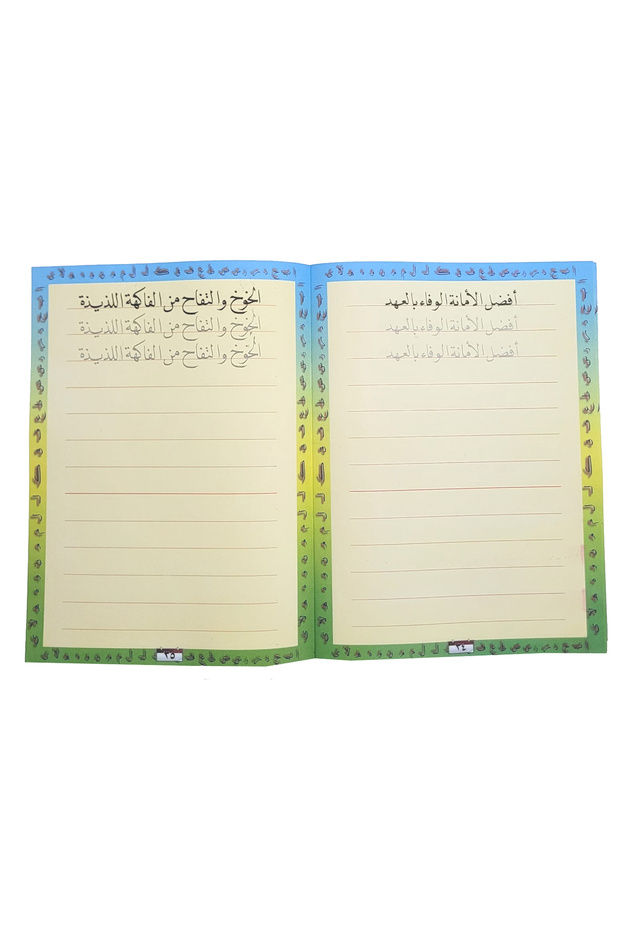 أفضل الأمانة الوفاء بالعهد
أفضل الأمانة الوفاء بالعهد
أفضل الأمانة الوفاء بالعهد
٢٤
الخوخ والتفاح من الفاكهة اللذيذة
الخوخ والتفاح من الفاكهة اللذيذة
الخوخ والتفاح من الفاكهة اللذيذة
٢٥